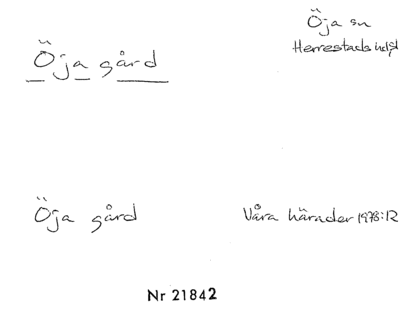 Öja gård
Öja sn
Herrestads hd
Öja gård
Våra härader 1978:12
Nr 21842